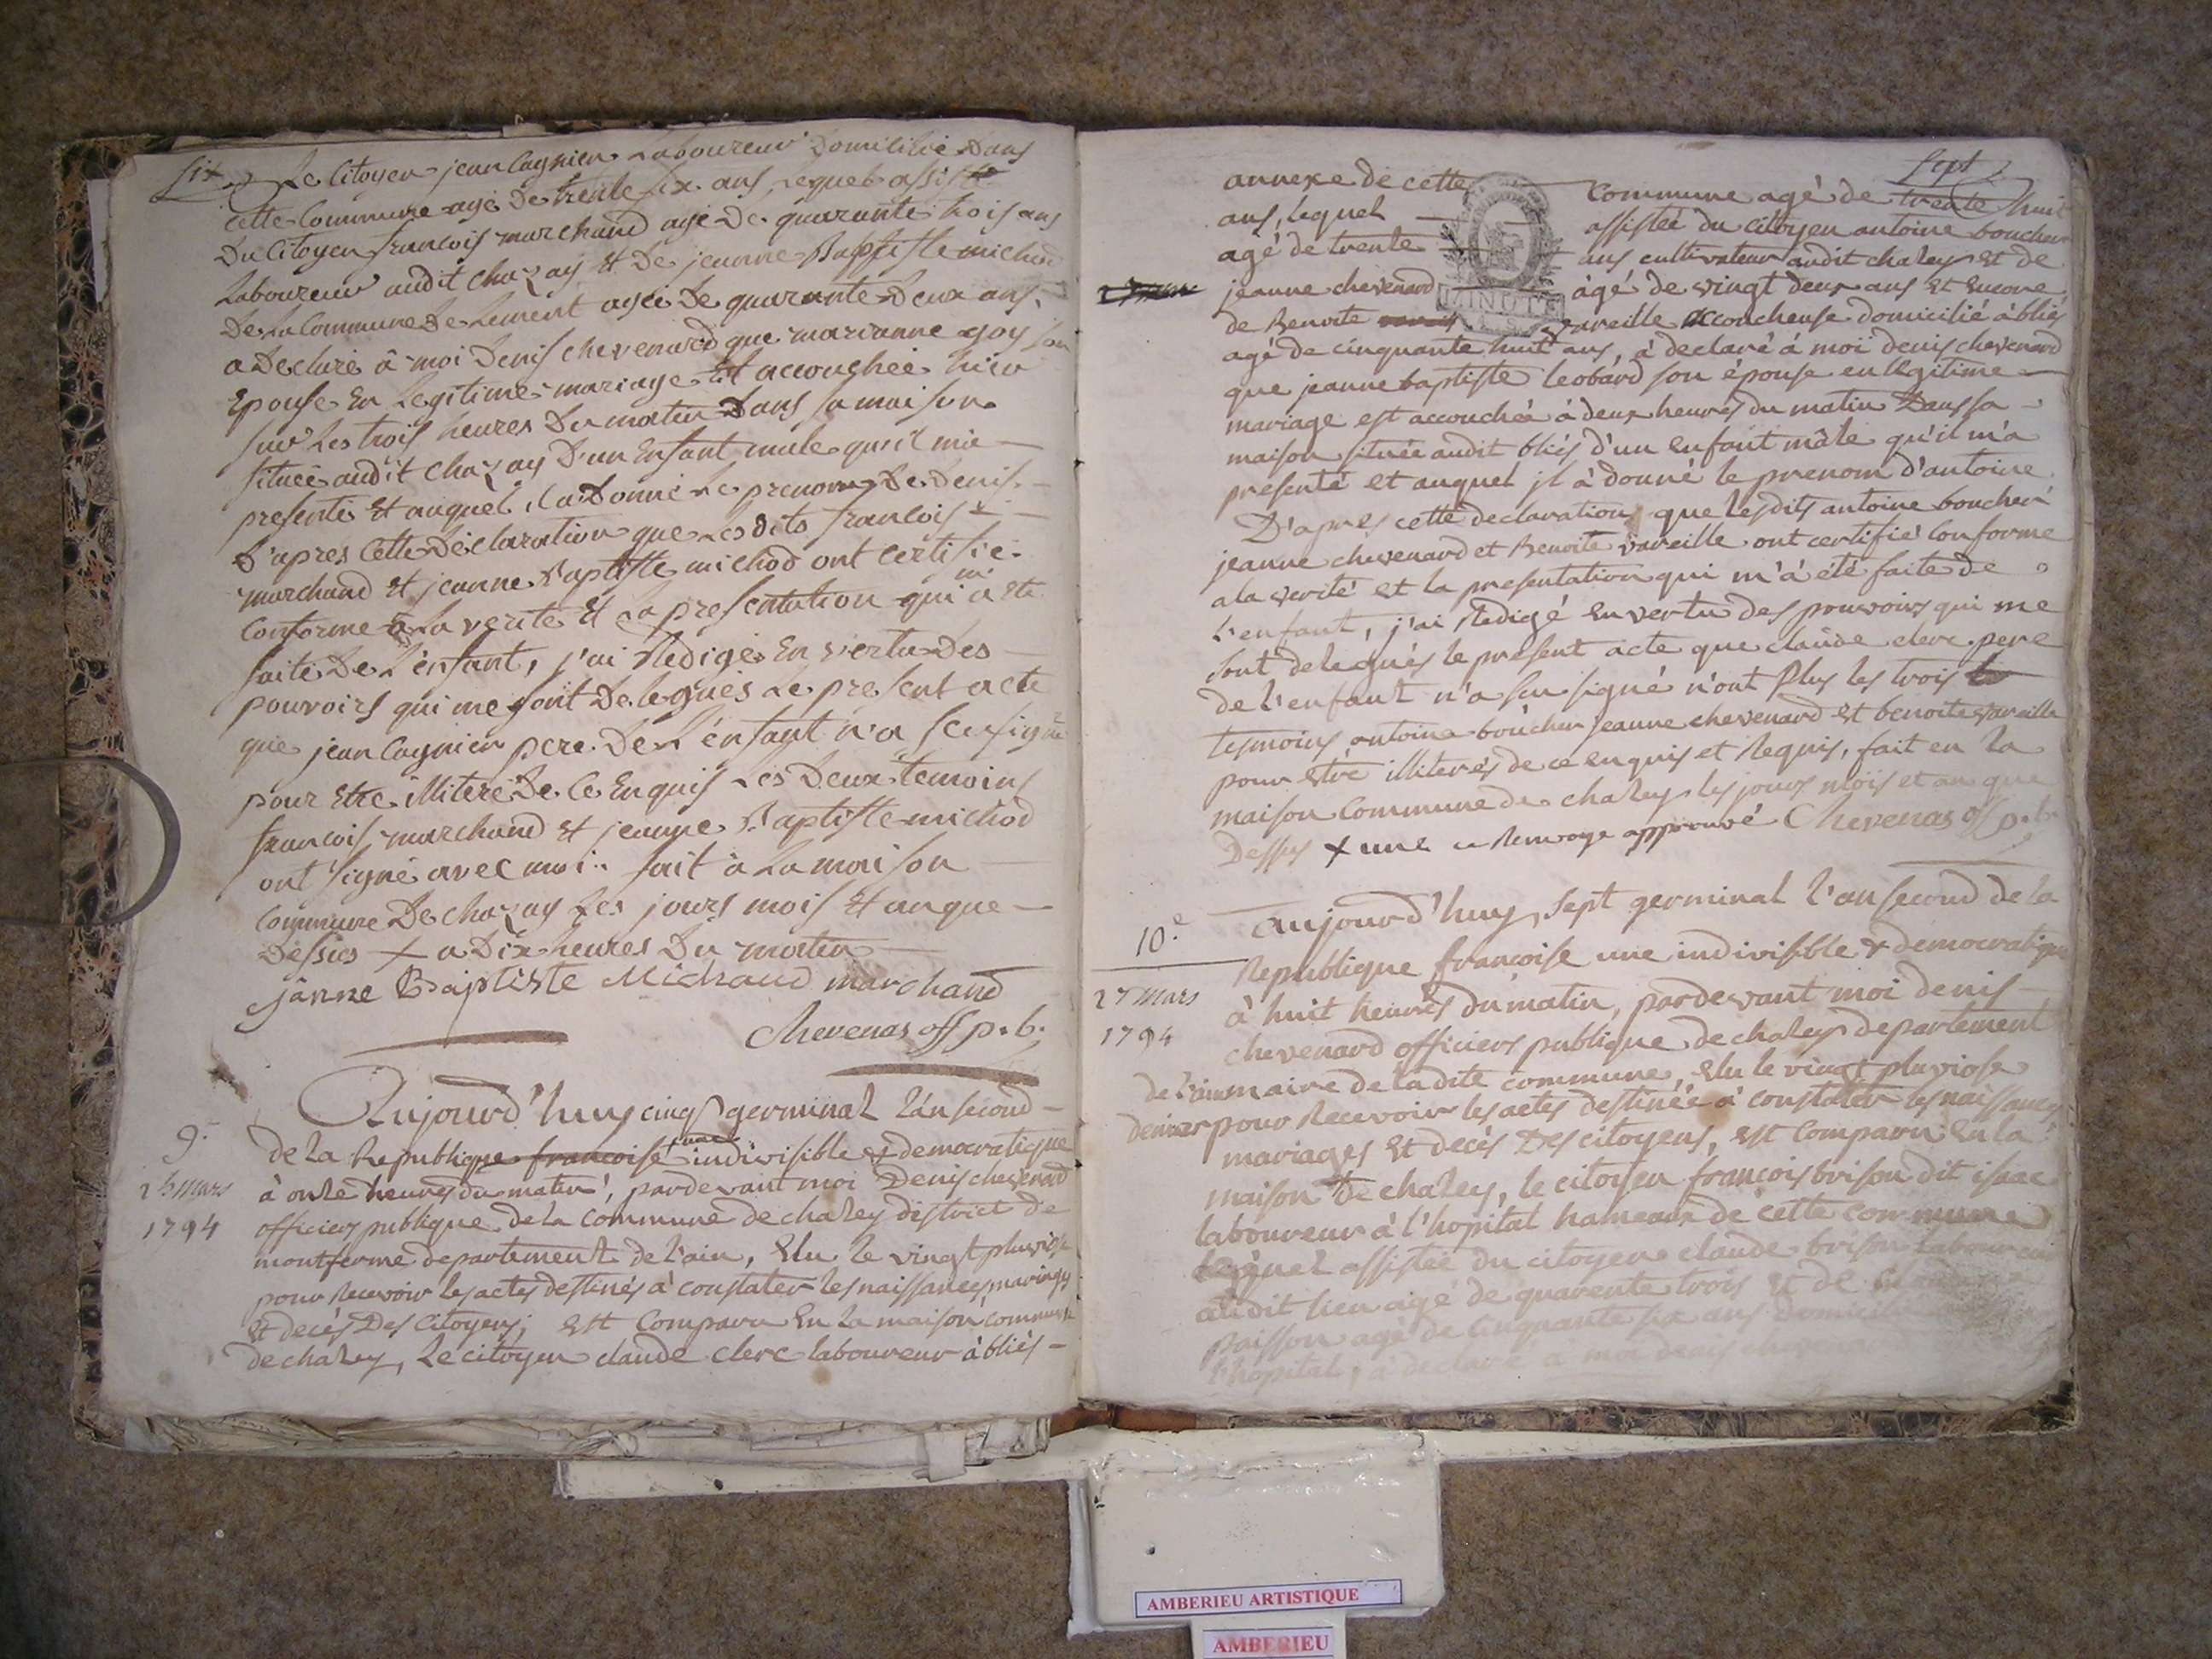 six
Le Citoyen jean Cagnien Laboureur Domicilié Dans
cette Commune agé De trente six ans, Lequel assisté
Du Citoyen francois marchand agé De quarante trois ans
Laboureur audit chazay Et De jeanne Baptiste michod
De La Commune De Lement agée De quarante Deux ans,
a Declaré â moi Denis chevenard que marianne goy son
Epouse En Legitime mariage Est accouchée hier
sur Les trois heures Du matin Dans sa maison
située audit chazay D'un Enfant male qu'il m'a
presenté Et auquel il a Donné Le prenom De Denis
D'apres Cette Déclaration que Les dits francois
marchand Et jeanne Baptiste michod ont certifié
Conforme à La verité Et La presentation qui m'a eté
faite De L'enfant, j'ai Redigé En vertu Des
pouvoirs qui me sont Delegués Le present acte
que jean Cagnien pere De L'enfant n'a sçu signé
pour Etre illiteré De Ce Enquis Les Deux temoins
francois marchand Et jeanne Baptiste michod
ont signé avec moi. fait à La maison
Commune De chazay Les jours mois Et an que
Dessus + a Dix heures Du matin
jânne Baptiste Michaud marchand
Chevenas off p. b.
Aujourd'huy cinq germinal l'an second
9.e
de la Republique francoise une indivisible & democratique
25 mars
à onze heures du matin, pardevant moi Denis chevenard
1794
officier publique de la Commune de chazey district de
montferme departement de l'ain, Elu le vingt pluviose
pour Recevoir les actes destinés à constater les naissances, mariages
Et decès Des Citoyens, Est Comparu En La maison commune
de chazey, Le citoyen claude clerc laboureur à bliés
sept
annexe de cette Commune agé de trente huit
ans, lequel assistée du Citoyen antoine boucher
agé de trente ans cultivateur audit chazey et de
jeanne chevenard âgé de vingt deux ans et encore
MINUTE
de Benoite vareille accoucheuse domicilié à bliés
agé de cinquante huit ans, à declaré á moi denis chevenard
que jeanne baptiste leobard son épouse en legitime
mariage est accouchée à deux heures du matin Dans sa
maison située audit bliés d'un enfant mâle qu'il m'a
presenté et auquel jl à donné le prenom d'antoine
D'apres cette declaration que lesdits antoine boucher
jeanne chevenard et Benoite vareille ont certifié Conforme
a la verité et la presentation qui m'á été faite de
l'enfant, j'ai Redigé en vertu des pouvoirs qui me
sont delegués le present acte que claude clerc pere
de l'enfant n'a sçu signé n'ont Plus les trois
tesmoins antoine boucher jeanne chevenard et benoite vareille
pour estre illiterés de ce enquis et Requis, fait en la
maison Commune de chazey les jours mois et an que
Dessus + une Renvoye approuvé Chevenas off p. b.
Aujourd'huy, sept germinal l'an second de la
10.e
Republique francoise une indivisible & democratique
27 mars
à huit heures du matin, pardevant moi denis
1794
chevenard officiers publique de chazey departement
de l'ain maire de la dite commune, Elu le vingt pluviose
denier pour Recevoir les actes destinée à constater les naissances
mariages Et decès Des citoyens, est Comparu En la
maison De chazey, le citoyen francois brison dit isaac
laboureur à l'hopital hameaux de cette commune
lequel assistée du citoyen claude brison Laboureur
audit lieu agé de quarente trois et de
paisson agé de cinquante six ans domicilié
l'hopital, à declaré a moi denis chevenard
AMBERIEU ARTISTIQUE
AMBERIEU